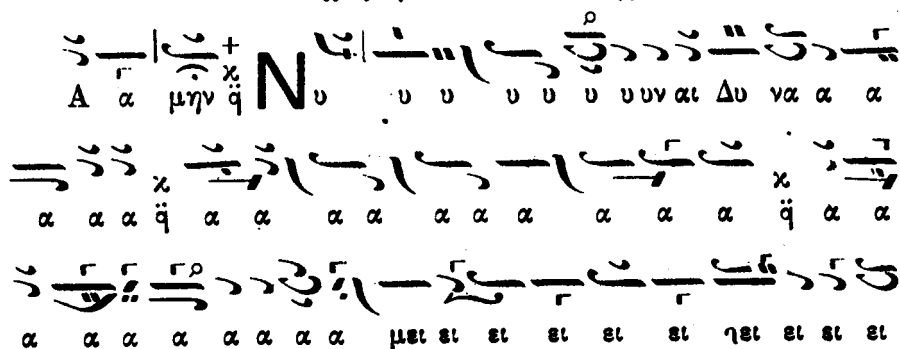 Α α μην ϰ q̈ Νυ υ υ υ υ υ υ υν αι Δυ να α α
α α α ϰ q̈ α α α α α α α α α α ϰ q̈ α α
α α α α α α α α μει ει ει ει ει ει ηει ει ει ει